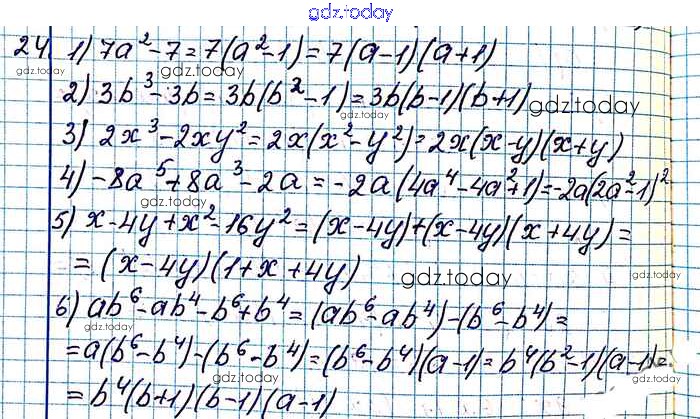 gdz.today
24. 1) 7a² - 7 = 7(a² - 1) = 7(a - 1)(a + 1)
gdz.today gdz.today
2) 3b³ - 3b = 3b(b² - 1) = 3b(b - 1)(b + 1) gdz.today
gdz.today
3) 2x³ - 2xy² = 2x(x² - y²) = 2x(x - y)(x + y)
gdz.today
4) -8a⁵ + 8a³ - 2a = -2a(4a⁴ - 4a² + 1) = -2a(2a² - 1)²
gdz.today
5) x - 4y + x² - 16y² = (x - 4y) + (x - 4y)(x + 4y) =
= (x - 4y)(1 + x + 4y) gdz.today
6) ab⁶ - ab⁴ - b⁶ + b⁴ = (ab⁶ - ab⁴) - (b⁶ - b⁴) =
gdz.today
= a(b⁶ - b⁴) - (b⁶ - b⁴) = (b⁶ - b⁴)(a - 1) = b⁴(b² - 1)(a - 1) =
gdz.today
= b⁴(b + 1)(b - 1)(a - 1)